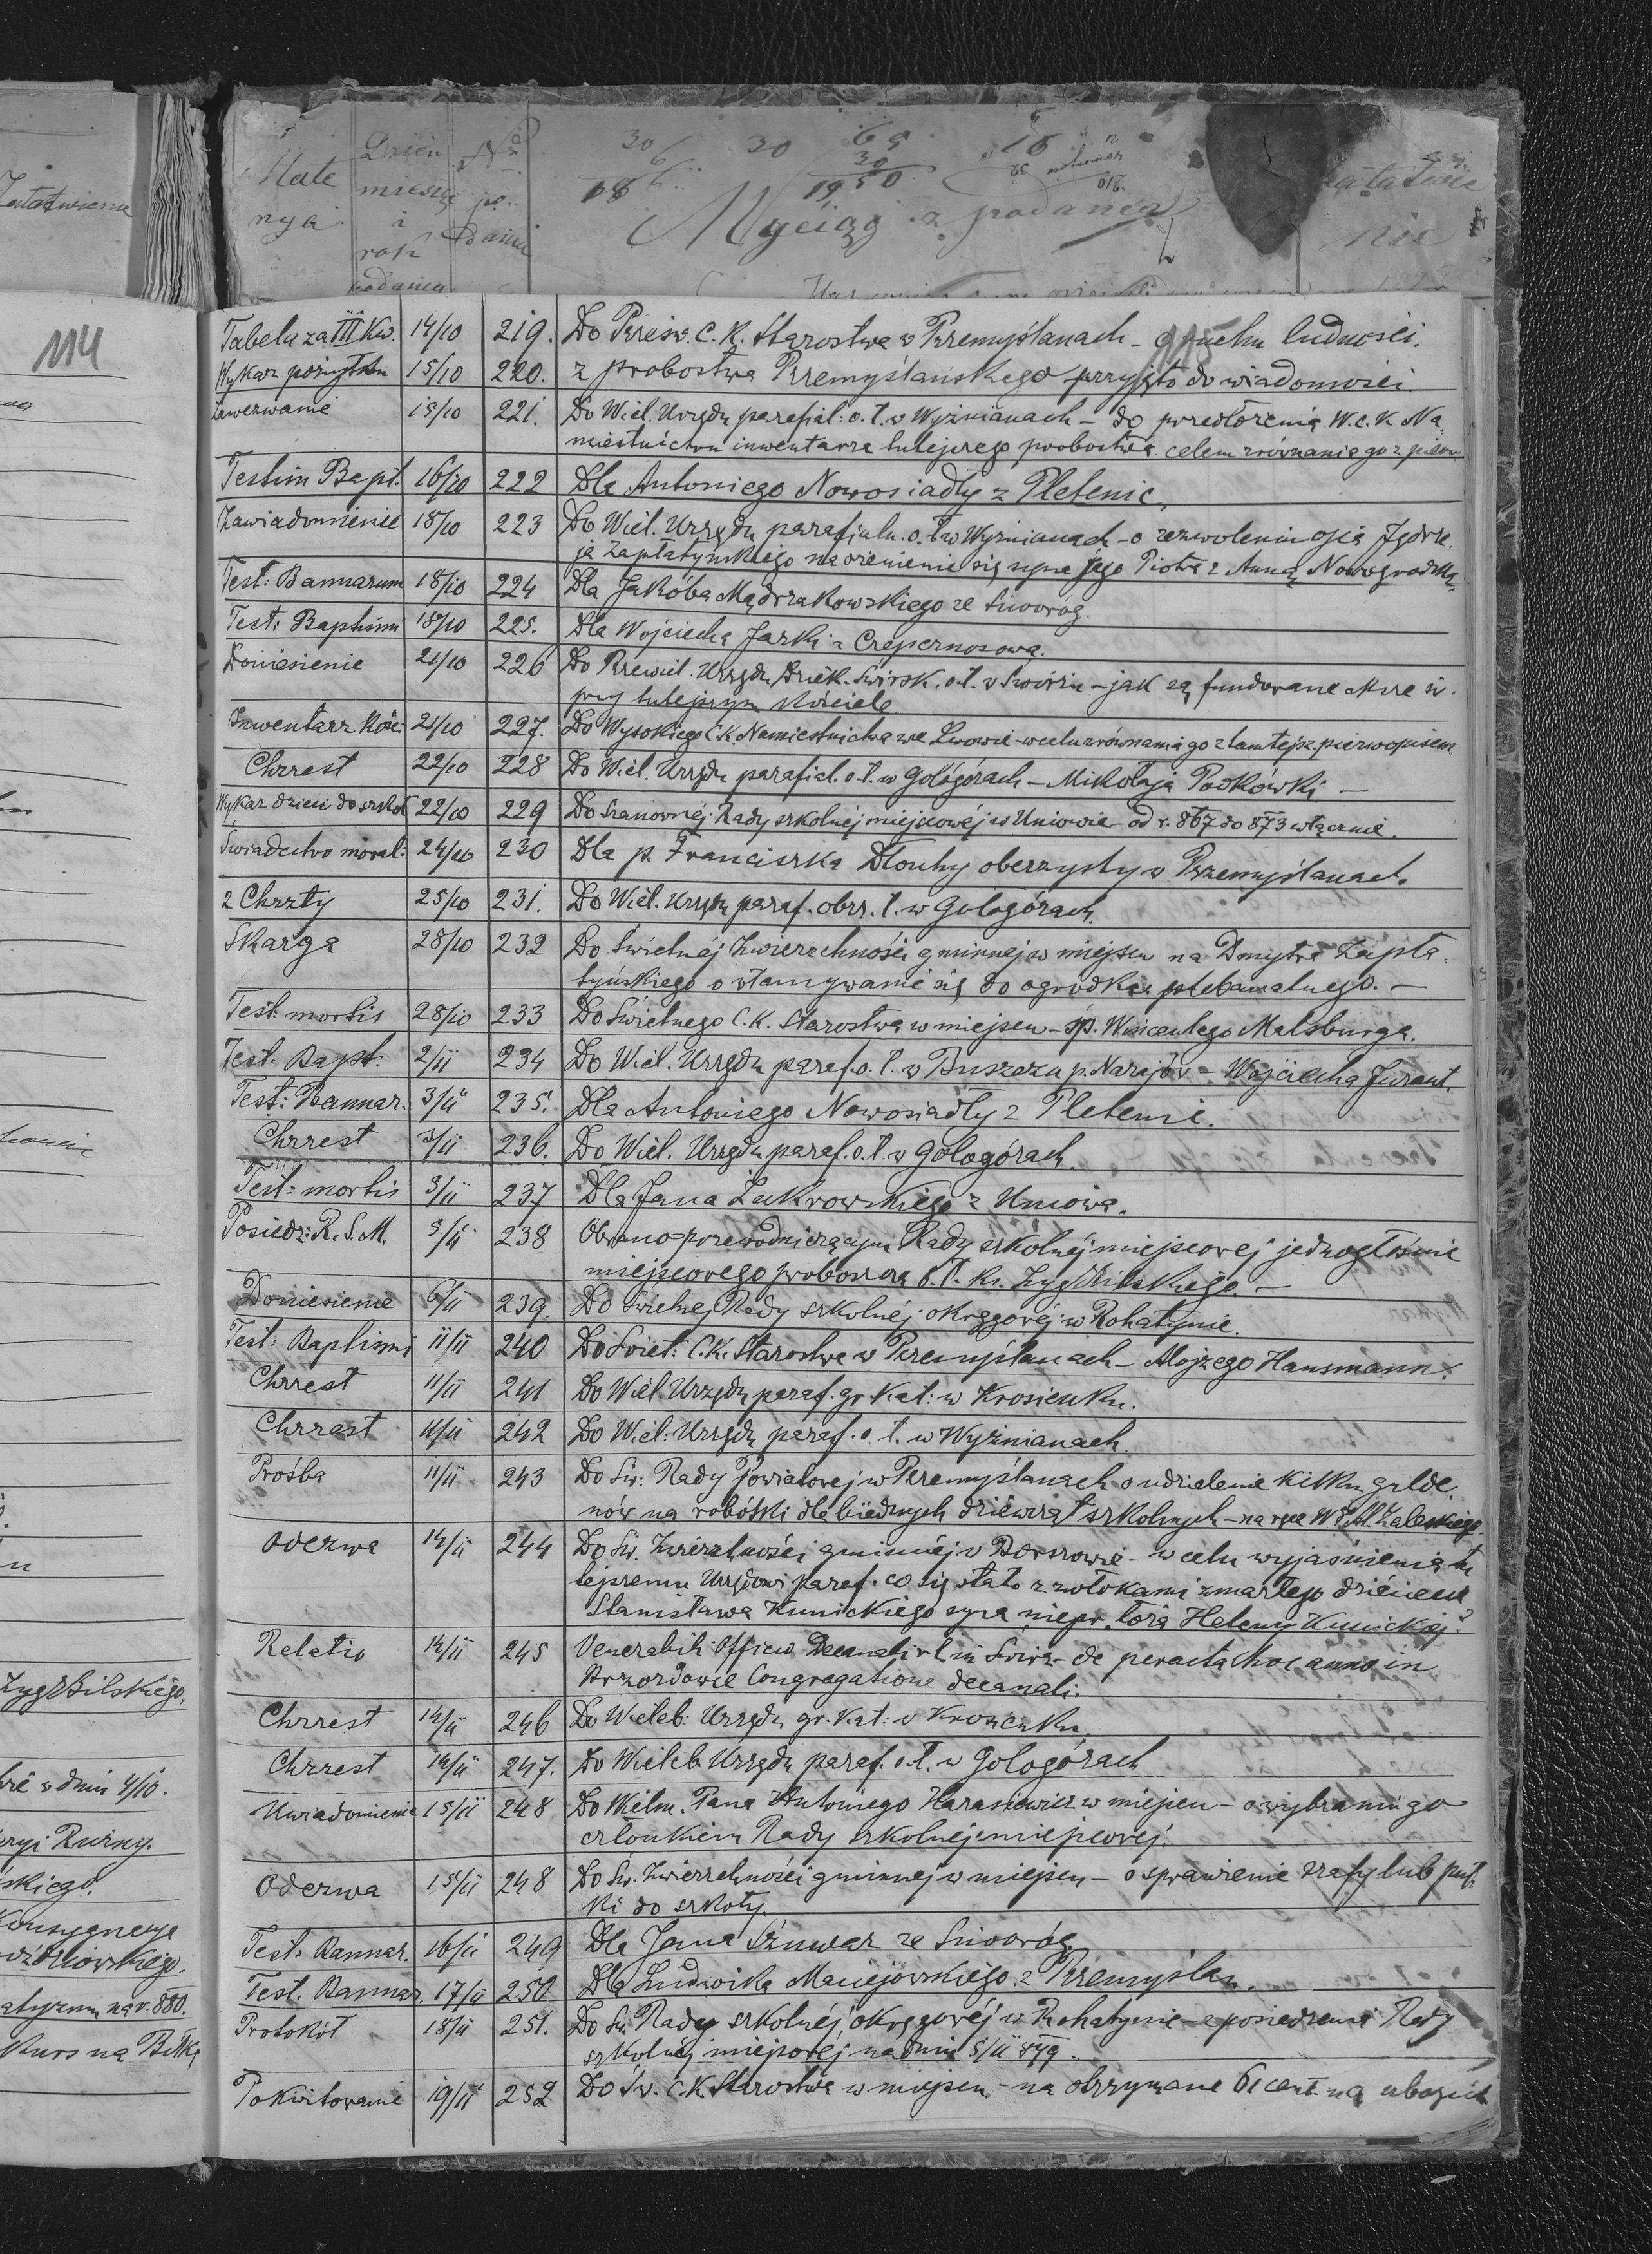 Załatwienie
114
Zygdbilskiego,
w dniu 4/10.
skiego.
Konsygnacya
na r. 880.
Kurs na Bitkę
Mate
rya
Dzień
miesiąc
i
rok
podania
No
po-
dania
30 30 69
30
186 1950
Wyciąg z podania
Załatwie
nie
115
Tabela za III Kw. 14/10 219. Do Prześw. C. K. Starostwa w Przemyślanach - o ruchu ludności.
Wykaz pożytków 15/10 220. z probostwa Przemyślańskiego przyjęto do wiadomości
Zawezwanie 15/10 221. Do Wiel. Urzędu parafial: o. ł. w Wyżnianach - do przedłożenia W. c. K. Na
miestnictwu inwentarza tutejszego probostwa celem zrównania go z pierw.
Testim Bapt. 16/10 222 Dla Antoniego Nowosiadły z Pletenic.
Zawiadomienie 18/10 223 Do Wiel. Urzędu parafialn. o. ł. w Wyżnianach - o zezwoleniu ojca Jędrze
ja Zapłatyńskiego na ożenienie się syna jego Piotra z Anną Nowogrodzką
Test: Bannarum 18/10 224 Dla Jakóba Mądrzakowskiego ze Siworóg.
Test: Baptismi 18/10 225. Dla Wojciecha Jarki z Czepernosowa.
Doniesienie 21/10 226 Do Przewiel. Urzędu Dziek. Świrsk. o. ł. w Świrzu - jak są fundowane Msze św.
przy tutejszym Kościele
Inwentarz Kość: 21/10 227. Do Wysokiego C. K. Namiestnictwa we Lwowie - w celu zrównania go z tamtejsz. pierwopisem
Chrzest 22/10 228 Do Wiel. Urzędu parafial. o. ł. w Gołogórach - Mikołaja Podkówki -
Wykaz dzieci do szkoł 22/10 229 Do Szanownéj Rady szkolnéj miejscowéj w Uniowie - od r. 867 do 873 włącznie.
Świadectwo moral: 24/10 230 Dla p. Franciszka Dlouhy oberzysty w Przemyślanach.
2 Chrzty 25/10 231. Do Wiel. Urzędu paraf. obrz. ł. w Gołogórach.
Skarga 28/10 232 Do Świetnej Zwierzchności gminnej w miejscu na Dmytra Zapła-
tyńskiego o włamywanie się do ogródka plebanalnego. -
Test: mortis 28/10 233 Do Świetnego C. K. Starostwa w miejscu - śp. Wincentego Malsburga.
Test. Bapt. 2/11 234 Do Wiel. Urzędu paraf. o. ł. w Buszczu p. Narajów - Wojciecha Jurant.
Test: Bannar. 3/11 235. Dla Antoniego Nowosiadły z Pletenic.
Chrzest 3/11 236. Do Wiel. Urzędu paraf. o. ł. w Gołogórach.
Test: mortis 3/11 237 Dla Jana Zukrowskiego z Uniowa.
Posiedz: R. S. M. 5/11 238 Obrano przewodniczącym Rady szkolnéj miejscowej jednogłośnie
miejscowego proboszcza o. ł. ks. Zygdbilskiego. -
Doniesienie 6/11 239 Do świetnej Rady szkolnéj okręgowéj w Rohatynie.
Test: Baptismi 11/11 240 Do Świet: C. K. Starostwa w Przemyślanach - Alojzego Hausmann.
Chrzest 11/11 241 Do Wiel. Urzędu paraf. gr. kat: w Krosienku.
Chrzest 11/11 242 Do Wiel: Urzędu paraf. o. ł. w Wyżnianach.
Prośba 11/11 243 Do Św: Rady Powiatowej w Przemyślanach o udzielenie kilku gulde
nów na robótki dla biednych dziewcząt szkolnych - na ręce W. Zaleskiego.
Odezwa 14/11 244 Do Św. Zwierzchności gminnéj w Borszowie - w celu wyjaśnienia tu
tejszemu Urzędowi paraf. co się stało z zwłokami zmarłego dziécięcia
Stanisława Kunickiego syna niepr. łoża Heleny Kunickiej?
Relatio 14/11 245 Venerabili Officio Decanali r. l. in Świrz - de peracta hoc anno in
Brzozdowie Congregatione decanali.
Chrzest 14/11 246 Do Wieleb: Urzędu gr. kat: w Krosienku.
Chrzest 14/11 247. Do Wieleb. Urzędu paraf. o. ł. w Gołogórach
Uwiadomienie 15/11 248 Do Wielm. Pana Antoniego Harasiewicz w miejscu - o wybraniu go
członkiem Rady szkolnéj miejscowej.
Odezwa 15/11 248 Do Św. Zwierzchności gminnej w miejscu - o sprawienie szafy lub puł-
ki do szkoły
Test: Bannar. 16/11 249 Dla Jana Sznwar ze Siworóg
Test. Bannar. 17/11 250 Dla Ludwika Maciejowskiego z Przemyślan.
Protokół 18/11 251. Do Św. Rady szkolnéj okręgowéj w Rohatynie - z posiedzenia Rady
szkolnej miejscowej na dniu 5/11 879.
Pokwitowanie 19/11 252 Do Św. C. K. Starostwa w miejscu - na otrzymane 61 cent. na ubogich